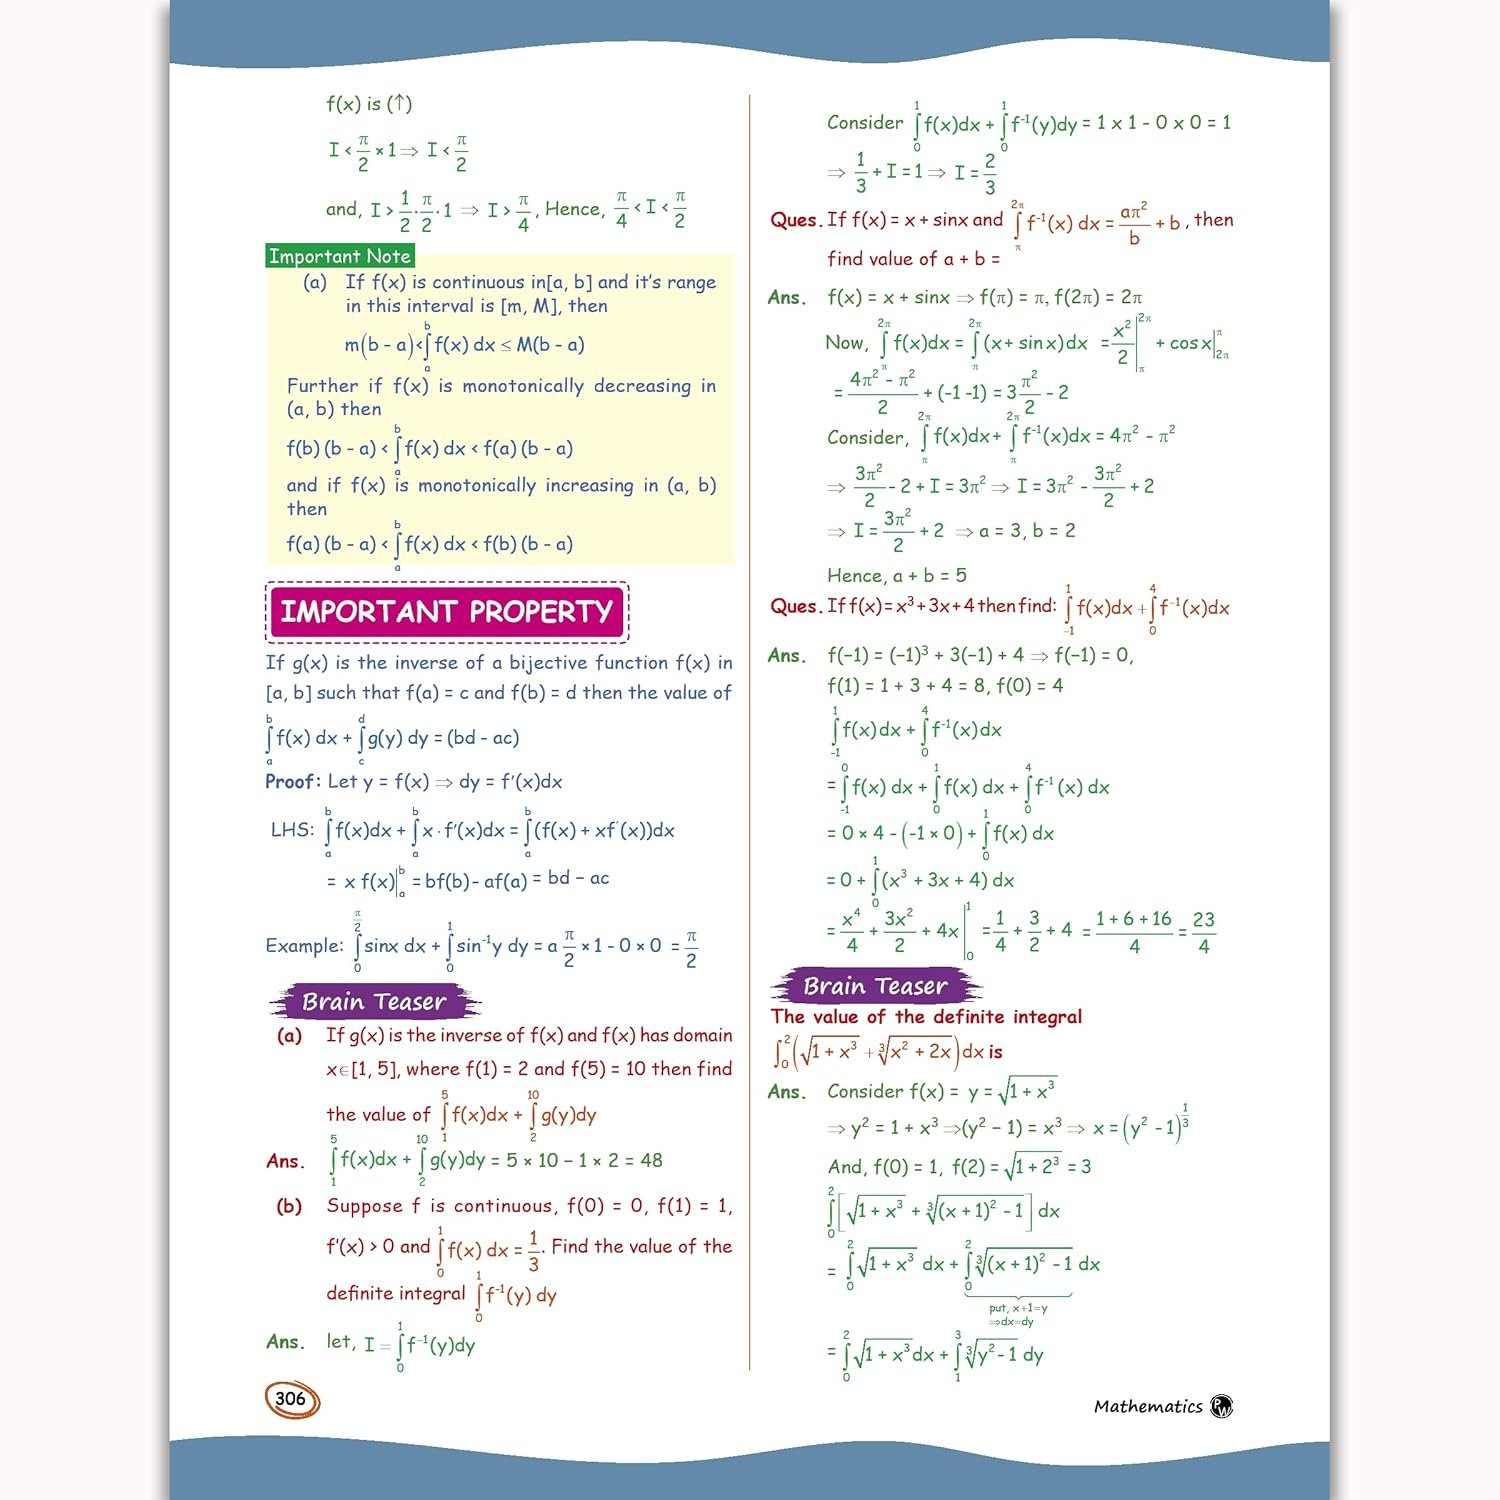 f(x) is (↑)
I < π/2 × 1 ⇒ I < π/2
and, I > 1/2 · π/2 · 1 ⇒ I > π/4, Hence, π/4 < I < π/2
Important Note
(a) If f(x) is continuous in[a, b] and it's range
in this interval is [m, M], then
m(b - a) < ∫_a^b f(x) dx ≤ M(b - a)
Further if f(x) is monotonically decreasing in
(a, b) then
f(b) (b - a) < ∫_a^b f(x) dx < f(a) (b - a)
and if f(x) is monotonically increasing in (a, b)
then
f(a) (b - a) < ∫_a^b f(x) dx < f(b) (b - a)
IMPORTANT PROPERTY
If g(x) is the inverse of a bijective function f(x) in
[a, b] such that f(a) = c and f(b) = d then the value of
∫_a^b f(x) dx + ∫_c^d g(y) dy = (bd - ac)
Proof: Let y = f(x) ⇒ dy = f'(x)dx
LHS: ∫_a^b f(x)dx + ∫_a^b x · f'(x)dx = ∫_a^b (f(x) + xf'(x))dx
= x f(x)|_a^b = bf(b) - af(a) = bd - ac
Example: ∫_0^(π/2) sinx dx + ∫_0^1 sin⁻¹y dy = a π/2 × 1 - 0 × 0 = π/2
Brain Teaser
(a) If g(x) is the inverse of f(x) and f(x) has domain
x∈[1, 5], where f(1) = 2 and f(5) = 10 then find
the value of ∫_1^5 f(x)dx + ∫_2^10 g(y)dy
Ans. ∫_1^5 f(x)dx + ∫_2^10 g(y)dy = 5 × 10 – 1 × 2 = 48
(b) Suppose f is continuous, f(0) = 0, f(1) = 1,
f'(x) > 0 and ∫_0^1 f(x) dx = 1/3. Find the value of the
definite integral ∫_0^1 f⁻¹(y) dy
Ans. let, I = ∫_0^1 f⁻¹(y)dy
306
Consider ∫_0^1 f(x)dx + ∫_0^1 f⁻¹(y)dy = 1 x 1 - 0 x 0 = 1
⇒ 1/3 + I = 1 ⇒ I = 2/3
Ques. If f(x) = x + sinx and ∫_π^2π f⁻¹(x) dx = aπ²/b + b, then
find value of a + b =
Ans. f(x) = x + sinx ⇒ f(π) = π, f(2π) = 2π
Now, ∫_π^2π f(x)dx = ∫_π^2π (x + sinx)dx = x²/2|_π^2π + cosx|_2π^π
= (4π² - π²)/2 + (-1 -1) = 3 π²/2 - 2
Consider, ∫_π^2π f(x)dx + ∫_π^2π f⁻¹(x)dx = 4π² - π²
⇒ 3π²/2 - 2 + I = 3π² ⇒ I = 3π² - 3π²/2 + 2
⇒ I = 3π²/2 + 2 ⇒ a = 3, b = 2
Hence, a + b = 5
Ques. If f(x) = x³ + 3x + 4 then find: ∫_-1^1 f(x)dx + ∫_0^4 f⁻¹(x)dx
Ans. f(−1) = (−1)³ + 3(−1) + 4 ⇒ f(−1) = 0,
f(1) = 1 + 3 + 4 = 8, f(0) = 4
∫_-1^1 f(x)dx + ∫_0^4 f⁻¹(x)dx
= ∫_-1^0 f(x) dx + ∫_0^1 f(x) dx + ∫_0^4 f⁻¹(x) dx
= 0 × 4 - (-1 × 0) + ∫_0^1 f(x) dx
= 0 + ∫_0^1 (x³ + 3x + 4) dx
= x⁴/4 + 3x²/2 + 4x|_0^1 = 1/4 + 3/2 + 4 = (1 + 6 + 16)/4 = 23/4
Brain Teaser
The value of the definite integral
∫_0^2 (√(1 + x³) + ∛(x² + 2x))dx is
Ans. Consider f(x) = y = √(1 + x³)
⇒ y² = 1 + x³ ⇒ (y² − 1) = x³ ⇒ x = (y² - 1)^(1/3)
And, f(0) = 1, f(2) = √(1 + 2³) = 3
∫_0^2 [√(1 + x³) + ∛((x + 1)² - 1)] dx
= ∫_0^2 √(1 + x³) dx + ∫_0^2 ∛((x + 1)² - 1) dx
put, x+1=y
⇒dx=dy
= ∫_0^2 √(1 + x³)dx + ∫_1^3 ∛(y² - 1) dy
Mathematics PW